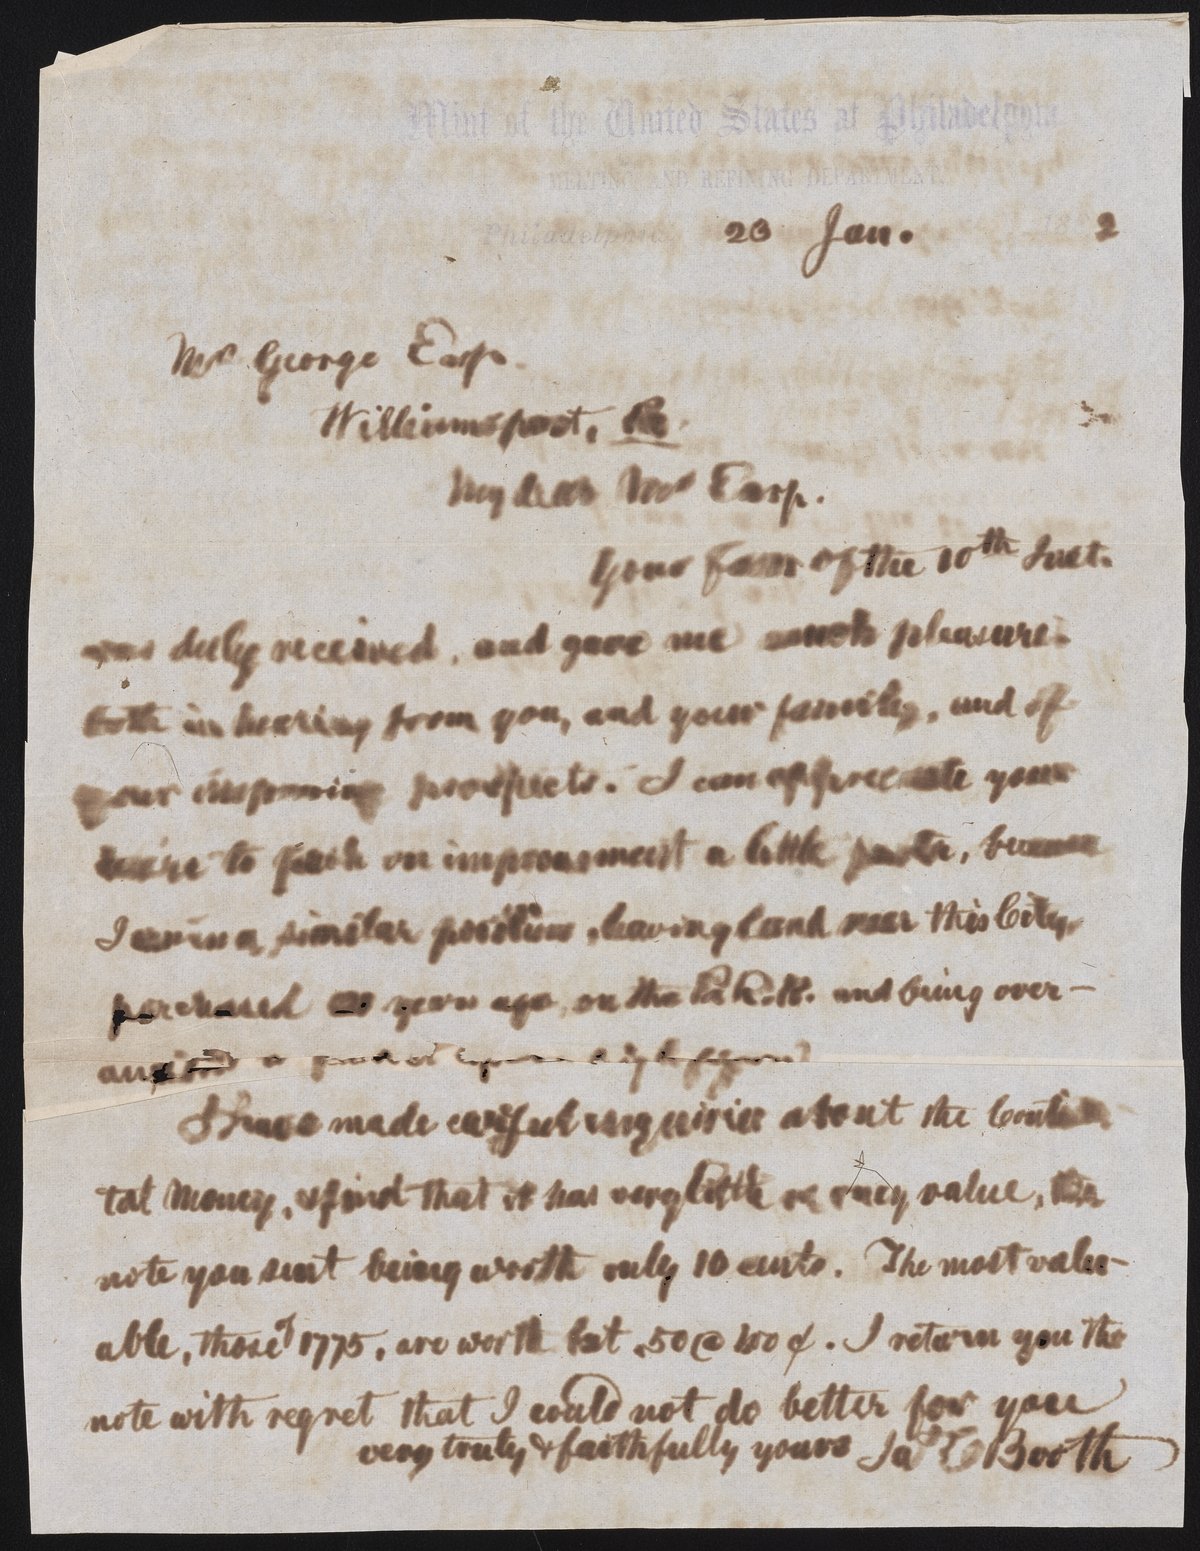 Mint of the United States at Philadelphia
MELTING AND REFINING DEPARTMENT.
Philadelphia, 20 Jan. 188 2
Mr George Earp.
Williamsport, Pa
My dear Mr Earp.
Your favor of the 10th Inst.
was duly received, and gave me much pleasure
both in hearing from you, and your family, and of
your improving prospects. I can appreciate your
desire to push on improvement a little faster, because
I am in a similar position, having land near this City,
purchased years ago, on the Pa R.R. and being over-
anxious a
I have made careful inquiries about the Continen
tal Money, & find that it has very little or any value, the
note you sent being worth only 10 cents. The most valu-
able, those of 1775, are worth but .50 @ ¢. I return you the
note with regret that I could not do better for you
very truly & faithfully yours Jas C Booth